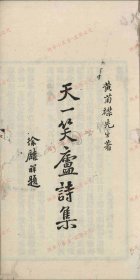 黄菊禅先生著
天一笑廬詩集
徐麟祥題